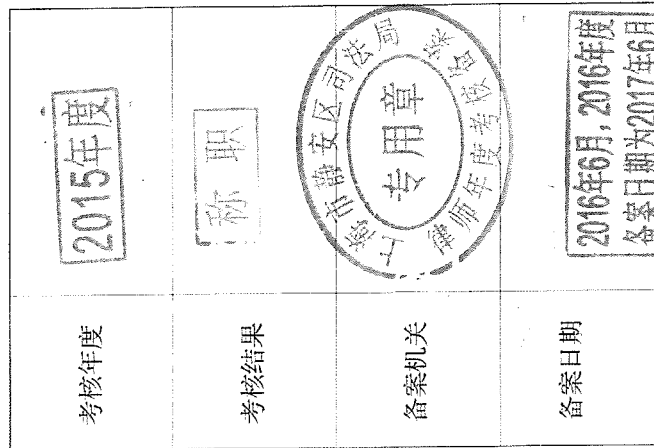 考核年度
2015年度
考核结果
称职
备案机关
上海市静安区司法局
专用章
律师年度考核备案
备案日期
2016年6月,2016年度
备案日期为2017年6月